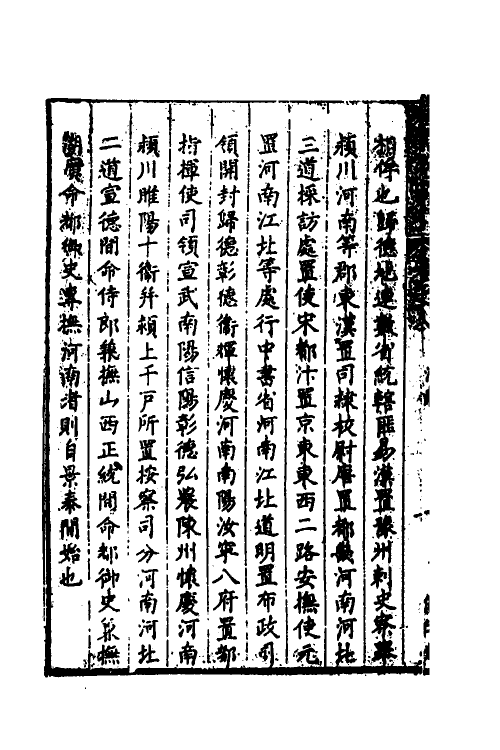 相俘也歸德地連數省統轄匪易漢置豫州刺史察舉
潁川河南等郡東漢置司棣校尉唐置都畿河南河北
三道採訪處置使宋都汴置京東東西二路安撫使元
置河南江北等處行中書省河南江北道明置布政司
領開封歸德彰德衞輝懷慶河南南陽汝寧八府置都
指揮使司領宣武南陽信陽彰德弘農陳州懷慶河南
潁川睢陽十衞并潁上千戶所置按察司分河南河北
二道宣德間命侍郎兼撫山西正統間命都御史兼撫
湖廣命都御史專撫河南者則自景泰間始也